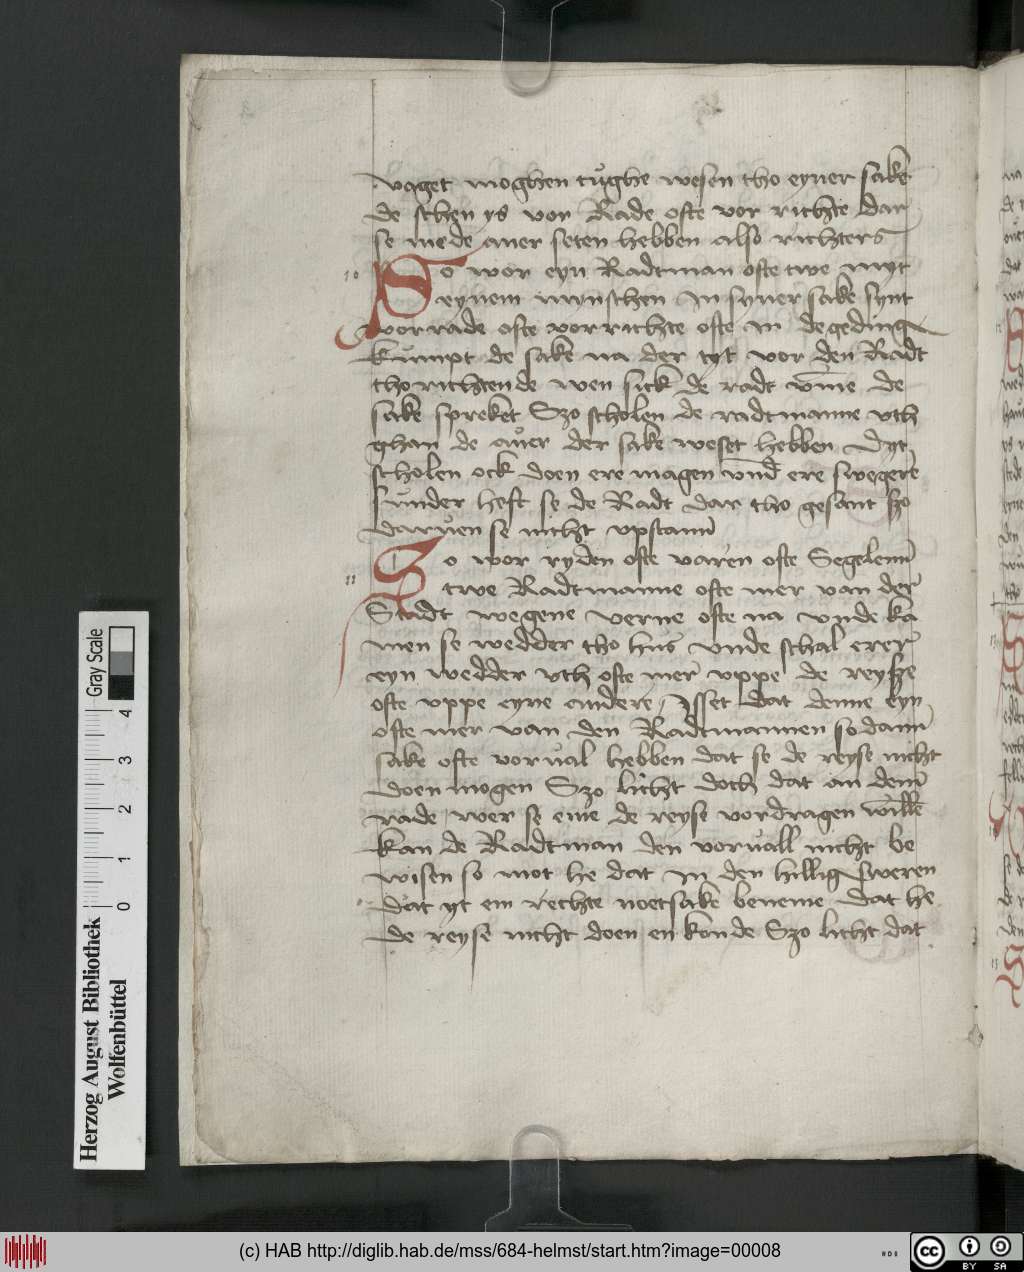 vaget moghen tughe wesen tho eyner sake
de schen ys vor Rade ofte vor richte dar
se mede auer seten hebben also richters
10 So wor eyn Radtman ofte twe myt
eynem mynschen In syner sake synt
vor rade ofte vor richte ofte in degeding
kumpt de sake na der tyt vor den Radt
tho richtende wen sick de radt vme de
sake spreket Szo scholen de radtmanne vth
ghan de auer der sake weset hebben Dyt
scholen ock doen ere magen vnd ere swegere
sunder heft se de Radt dar tho gesant szo
daruen se nicht vpstann
11 So wor ryden ofte varen ofte Segelenn
twe Radtmanne ofte mer van der
Stadt wegene verne ofte na vnde ka
men se wedder tho hus vnde schal erer
eyn wedder vth ofte mer vppe de reysze
ofte vppe eyne andere, Isset dat denne eyn
ofte mer van den Radtmannen so dann
sake ofte vorual hebben dat se de reyse nicht
doen mogen Szo licht doch dat an dem
rade wer se eme de reyse vordragen wille
kan de Radtman den voruall nicht be
wisen so mot he dat In den hillig sweren
dat yt em rechte noetsake beneme dat he
de reyse nicht doen en konde Szo licht dat
Gray Scale
4
3
2
1
0
Herzog August Bibliothek
Wolfenbüttel
(c) HAB http://diglib.hab.de/mss/684-helmst/start.htm?image=00008
cc BY SA